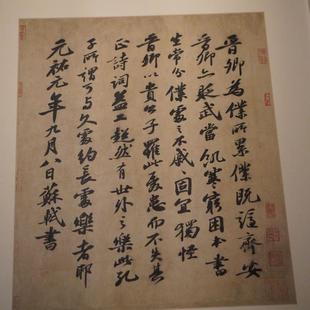 晉卿為僕所累僕既謫齊安
晉卿亦貶武當飢寒窮困本書
生常分僕處之不戚々固宜獨怪
晉卿以貴公子罹此憂患而不失其
正詩詞益工超然有世外之樂此孔
子所謂可与久處約長處樂者耶
元祐元年九月八日蘇軾書